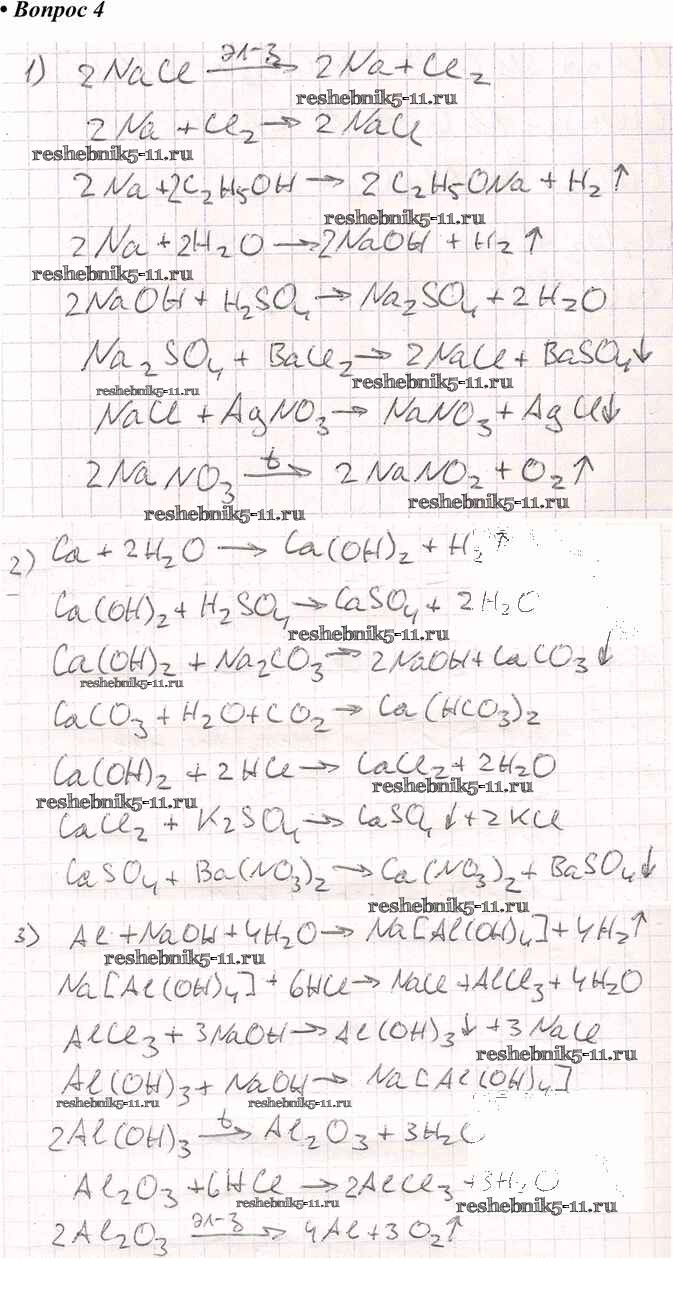 • Вопрос 4
1) 2NaCl эл-з→ 2Na + Cl₂
reshebnik5-11.ru
2Na + Cl₂ → 2NaCl
reshebnik5-11.ru
2Na + 2C₂H₅OH → 2C₂H₅ONa + H₂↑
reshebnik5-11.ru
2Na + 2H₂O → 2NaOH + H₂↑
reshebnik5-11.ru
2NaOH + H₂SO₄ → Na₂SO₄ + 2H₂O
Na₂SO₄ + BaCl₂ → 2NaCl + BaSO₄↓
reshebnik5-11.ru reshebnik5-11.ru
NaCl + AgNO₃ → NaNO₃ + AgCl↓
2NaNO₃ t→ 2NaNO₂ + O₂↑
reshebnik5-11.ru reshebnik5-11.ru
2) Ca + 2H₂O → Ca(OH)₂ + H₂↑
Ca(OH)₂ + H₂SO₄ → CaSO₄ + 2H₂O
reshebnik5-11.ru
Ca(OH)₂ + Na₂CO₃ → 2NaOH + CaCO₃↓
reshebnik5-11.ru
CaCO₃ + H₂O + CO₂ → Ca(HCO₃)₂
Ca(OH)₂ + 2HCl → CaCl₂ + 2H₂O
reshebnik5-11.ru reshebnik5-11.ru
CaCl₂ + K₂SO₄ → CaSO₄↓ + 2KCl
CaSO₄ + Ba(NO₃)₂ → Ca(NO₃)₂ + BaSO₄↓
reshebnik5-11.ru
3) Al + NaOH + 4H₂O → Na[Al(OH)₄] + 4H₂↑
reshebnik5-11.ru
Na[Al(OH)₄] + 6HCl → NaCl + AlCl₃ + 4H₂O
AlCl₃ + 3NaOH → Al(OH)₃↓ + 3NaCl
reshebnik5-11.ru
Al(OH)₃ + NaOH → Na[Al(OH)₄]
reshebnik5-11.ru reshebnik5-11.ru
2Al(OH)₃ t→ Al₂O₃ + 3H₂O
Al₂O₃ + 6HCl → 2AlCl₃ + 3H₂O
reshebnik5-11.ru reshebnik5-11.ru
2Al₂O₃ эл-з→ 4Al + 3O₂↑